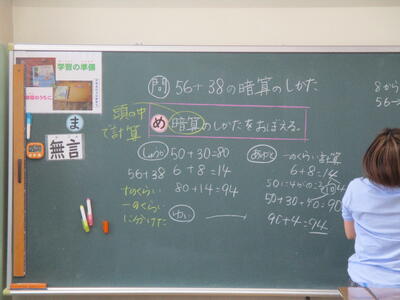 学習の準備
ま
無言
問 56+38の暗算のしかた
頭の中
で計算
め 暗算のしかたをおぼえる。
50+30=80
56+38 6+8=14
80+14=94
十のくらい
一のくらい
に分けた
一のくらい計算
6+8=14
50+30+10=90
90+4=94
8から
56